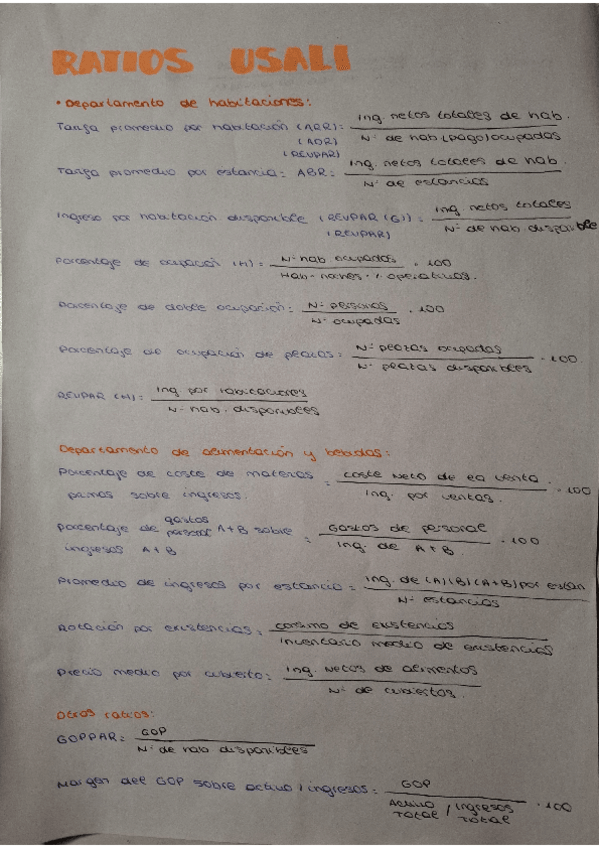 RATIOS USALI
• Departamento de habitaciones:
Tarifa promedio por habitación (ARR): Ing. netos totales de hab. / Nº de hab (pago) ocupadas
(ADR)
(REVPAR)
Tarifa promedio por estancia: ABR: Ing. netos totales de hab. / Nº de estancias
Ingreso por habitación disponible (REVPAR (G)) = Ing netos totales / Nº de hab. disponible
(REVPAR)
Porcentaje de ocupación (H) = Nº hab ocupadas / Hab-noches · operativos. · 100
Porcentaje de doble ocupación: Nº personas / Nº ocupadas · 100
Porcentaje de ocupación de plazas: Nº plazas ocupadas / Nº plazas disponibles · 100
REVPAR (H) = Ing por habitaciones / Nº hab. disponibles
Departamento de alimentación y bebidas:
Porcentaje de coste de materias primas sobre ingresos. = coste neto de la venta. / Ing. por ventas. · 100
Porcentaje de gastos personal A+B sobre ingresos A+B = Gastos de personal / Ing. de A+B. · 100
Promedio de ingresos por estancia = Ing. de (A)(B)(A+B) por estan / Nº estancias
Rotación por existencias: consumo de existencias / Inventario medio de existencias
Precio medio por cubierto: Ing. Netos de alimentos / Nº de cubiertos.
Otros ratios:
GOPPAR: GOP / Nº de hab disponibles
Margen del GOP sobre activo / ingresos: GOP / Activo Total / Ingresos Total · 100